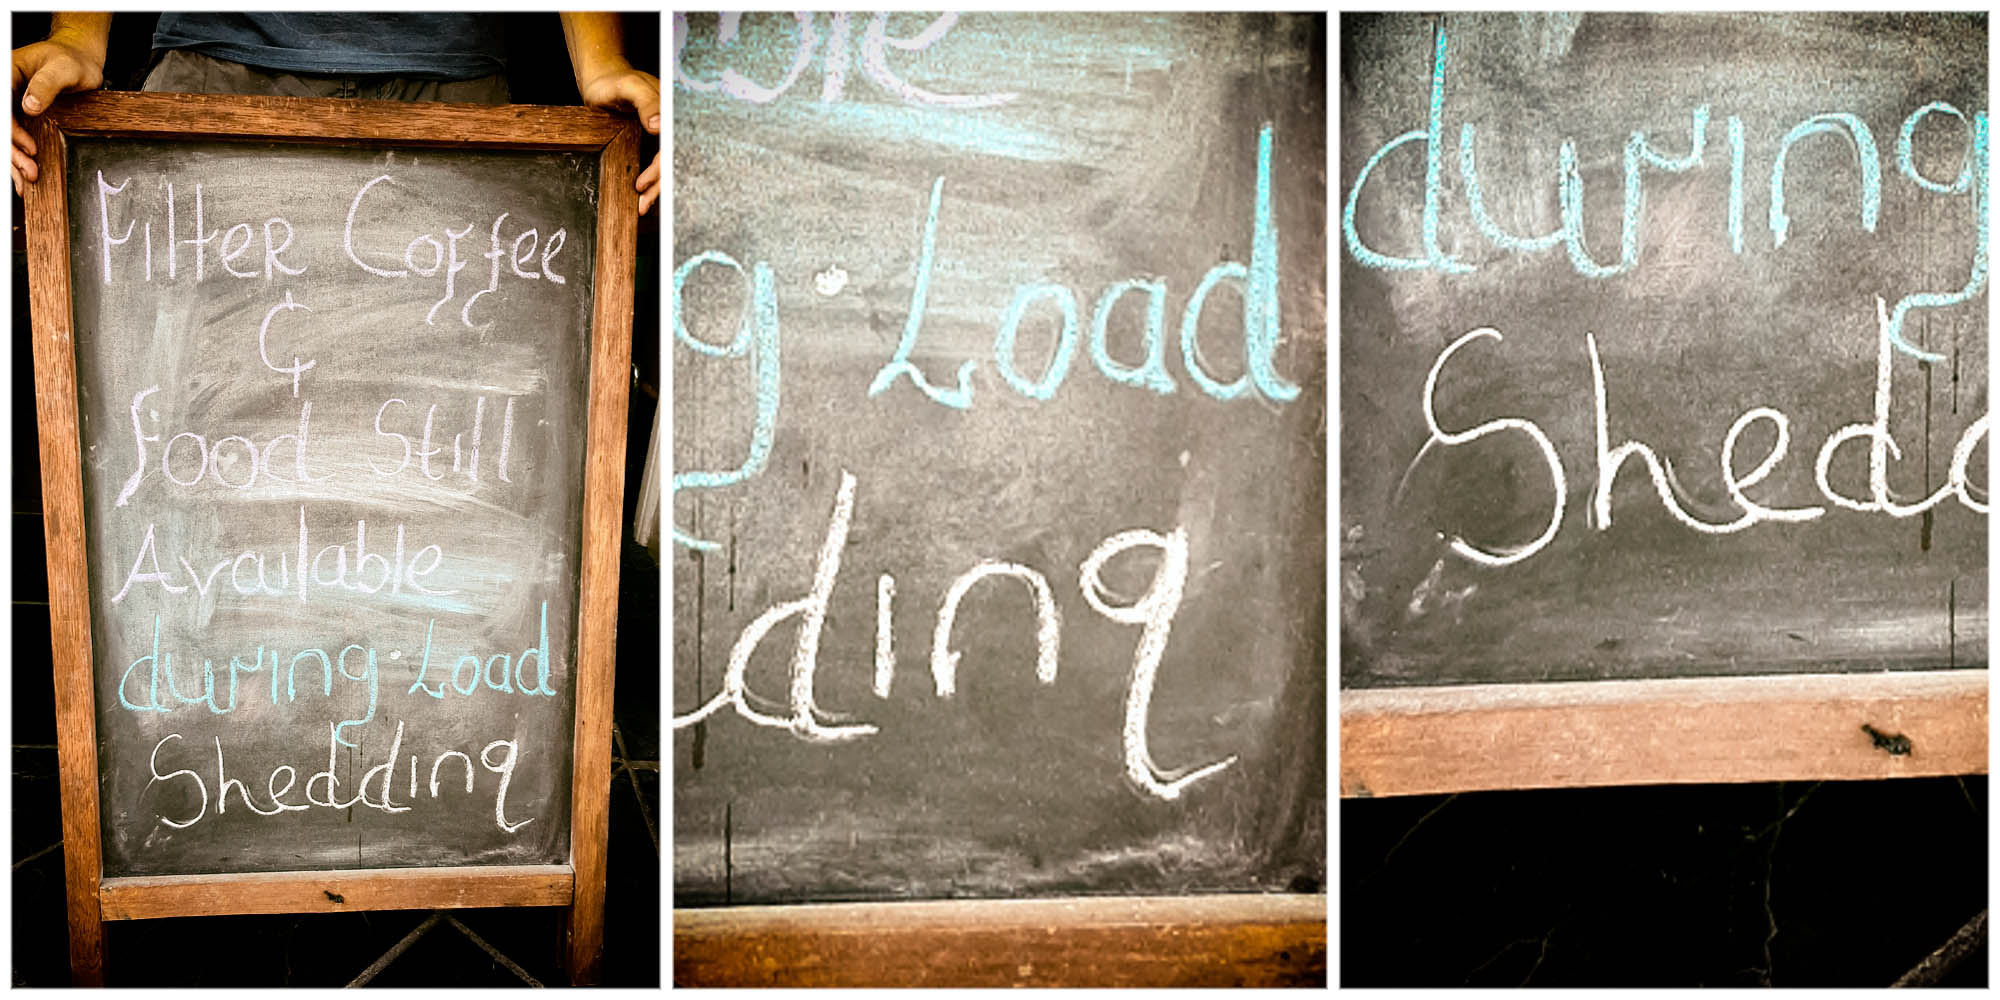 Filter Coffee
&
Food Still
Available
during Load
Shedding
ble
g Load
ding
during
Shedd